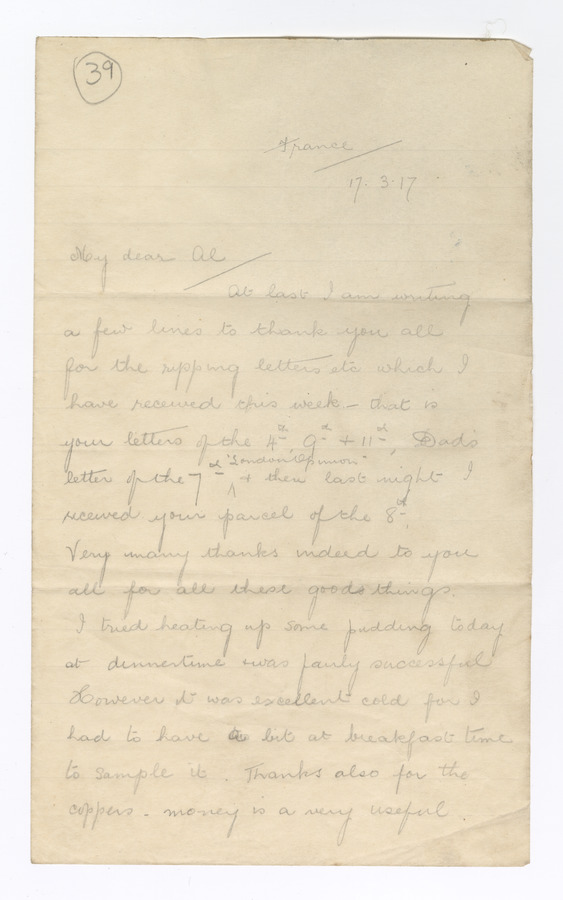 39
France
17.3.17
My dear Al
At last I am writing
a few lines to thank you all
for the ripping letters etc which I
have received this week – that is
your letters of the 4th 9th + 11th, Dads
"London Opinion"
letter of the 7th ^ + then last night I
received your parcel of the 8th.
Very many thanks indeed to you
all for all these good things.
I tried heating up some pudding today
at dinnertime & was fairly successful
However it was excellent cold for I
had to have a bit at breakfast time
to sample it. Thanks also for the
coppers - money is a very useful.